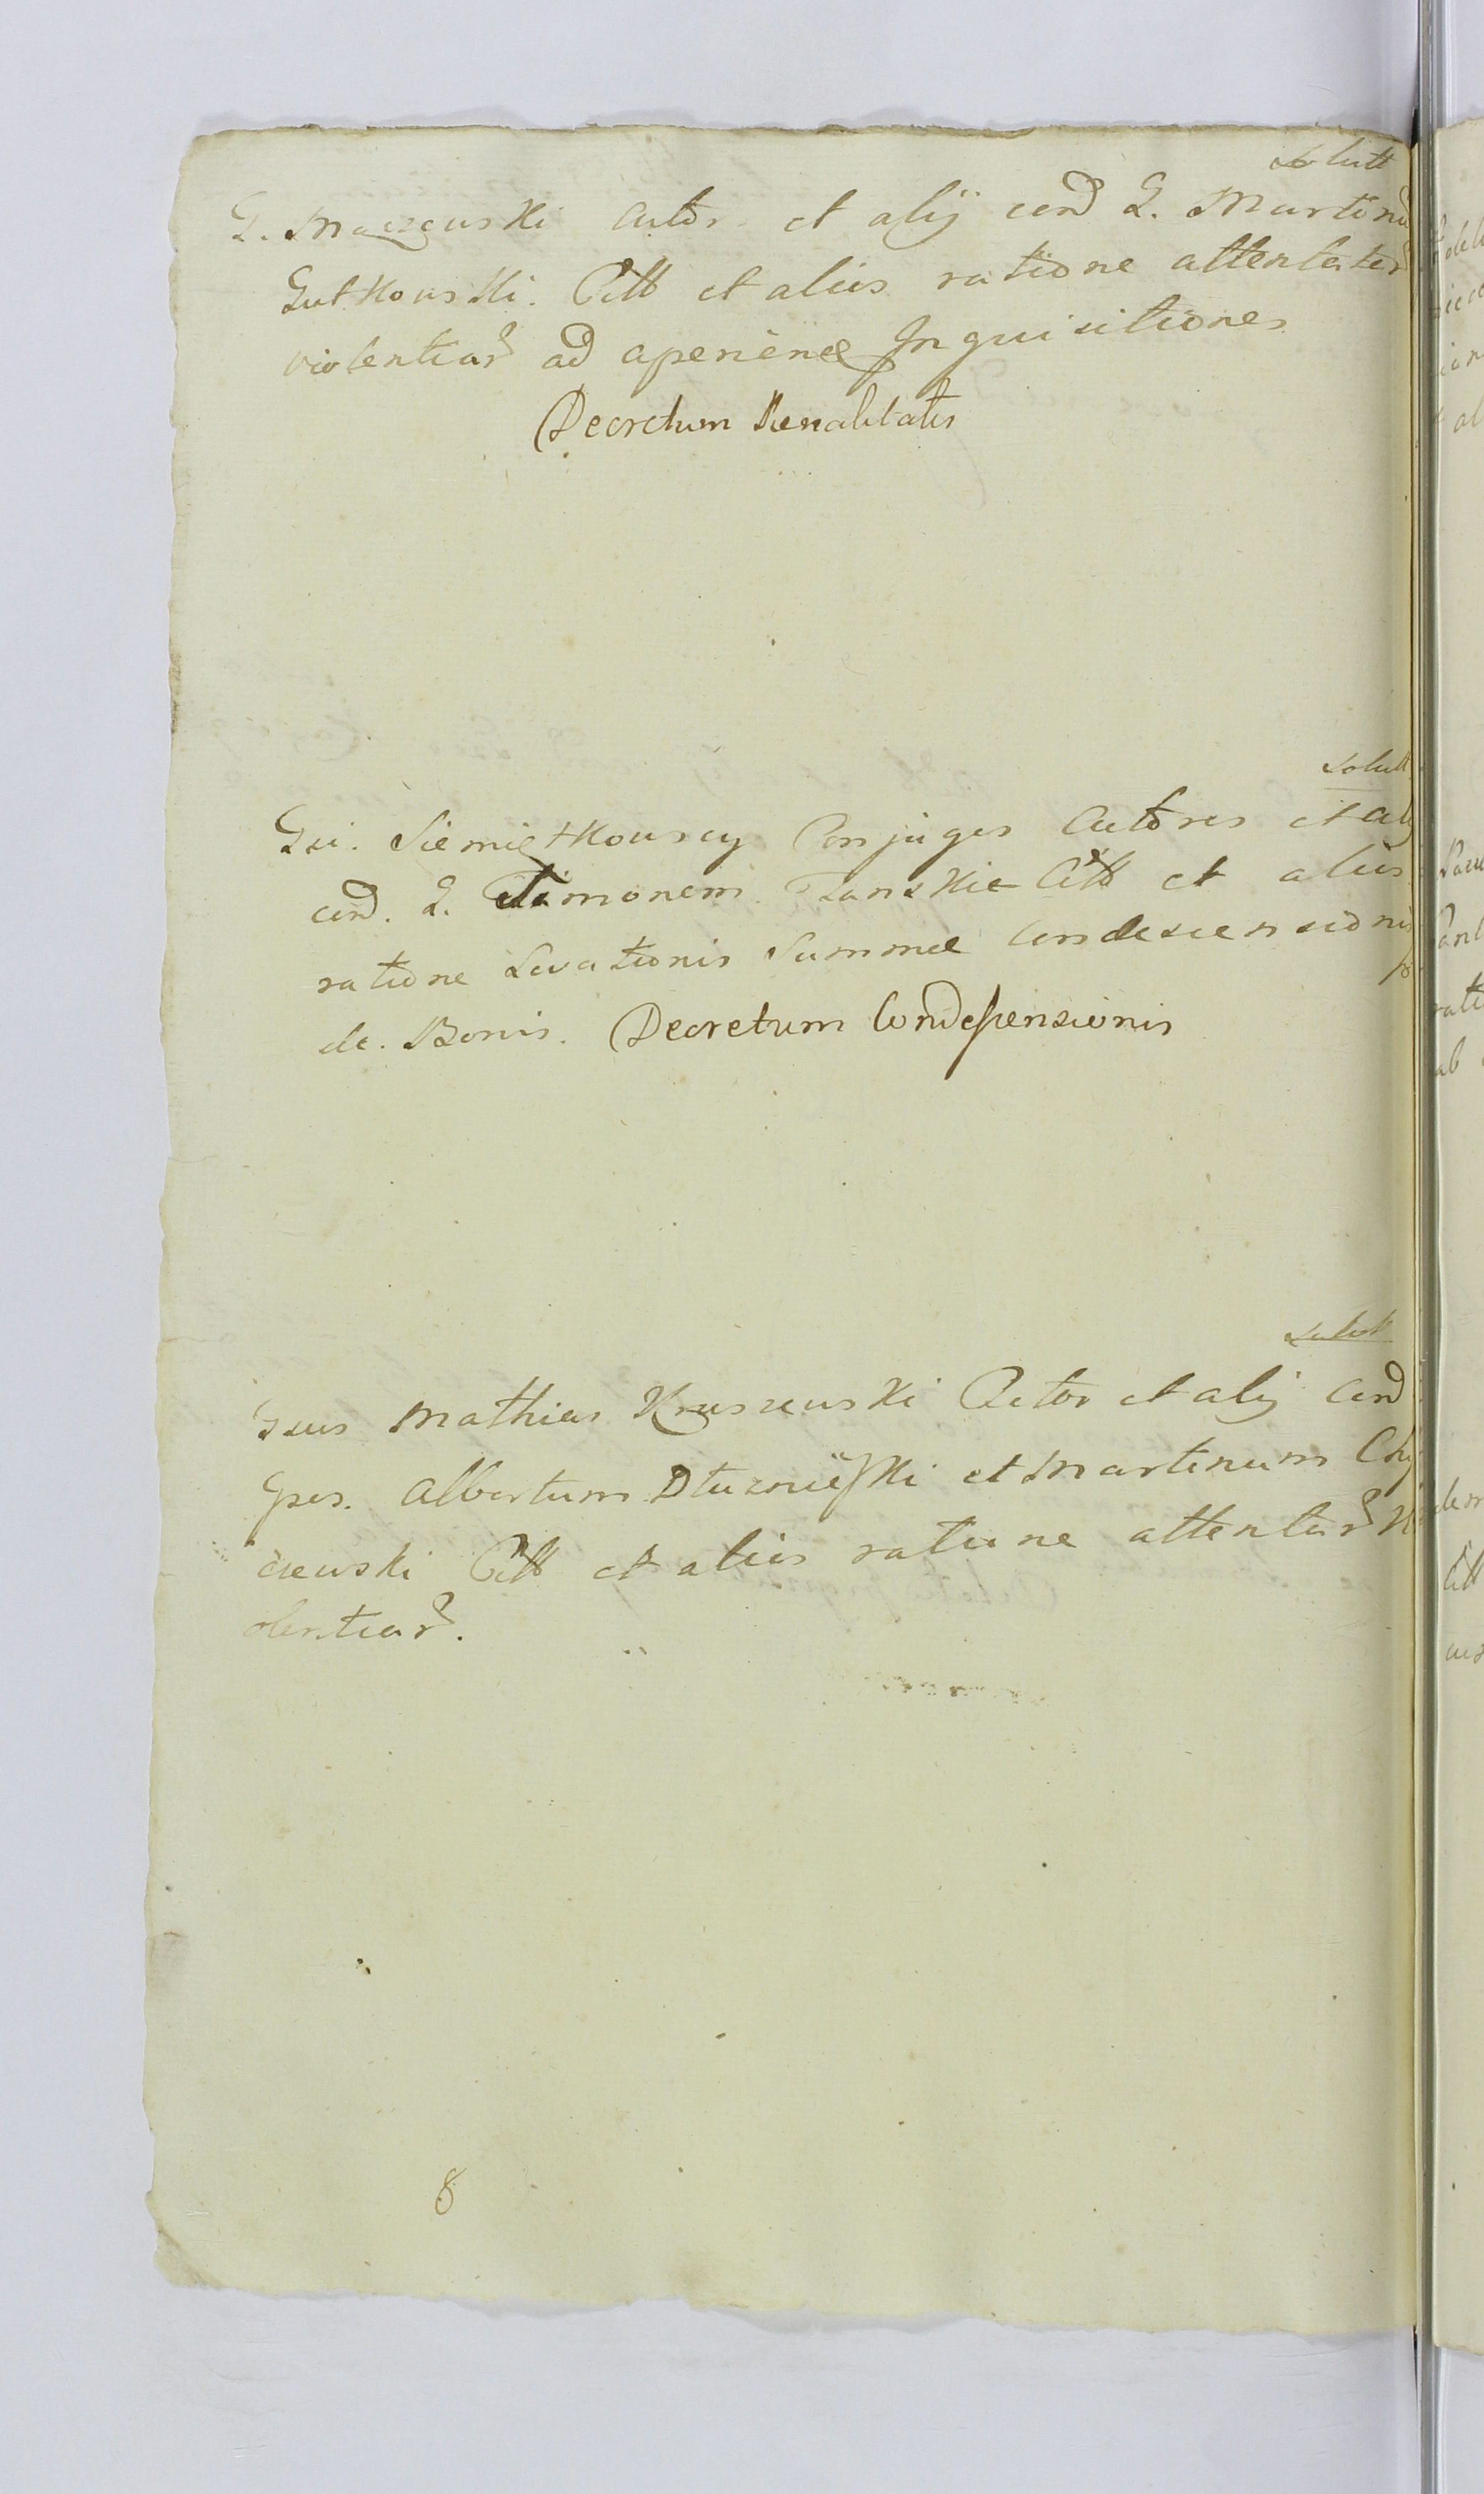 Solutt
G. Mączewski Actor et alij cond G. Martinū
Gutkowski. Citt et aliis ratione attentatar
violentiar ad aperiend Inquisitiones
Decretum Penalitatis
Solutt
Gsi. Siemiętkowscy Conjuges Actores et alij
cond. G. Simonem Zanskie Citt et aliis
ratione Levationis Summæ Condescensionis
de. Bonis. Decretum Condescensionis
Solutt
Gsus Mathias Kruszewski Actor et alij Cond
Gsos. Albertum Dłużniewski et Martinum
ciewski Citt et aliis ratione attentar
olentiar.
8